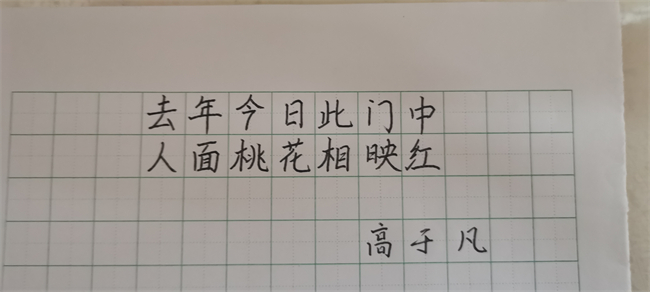 去年今日此门中
人面桃花相映红
高于凡